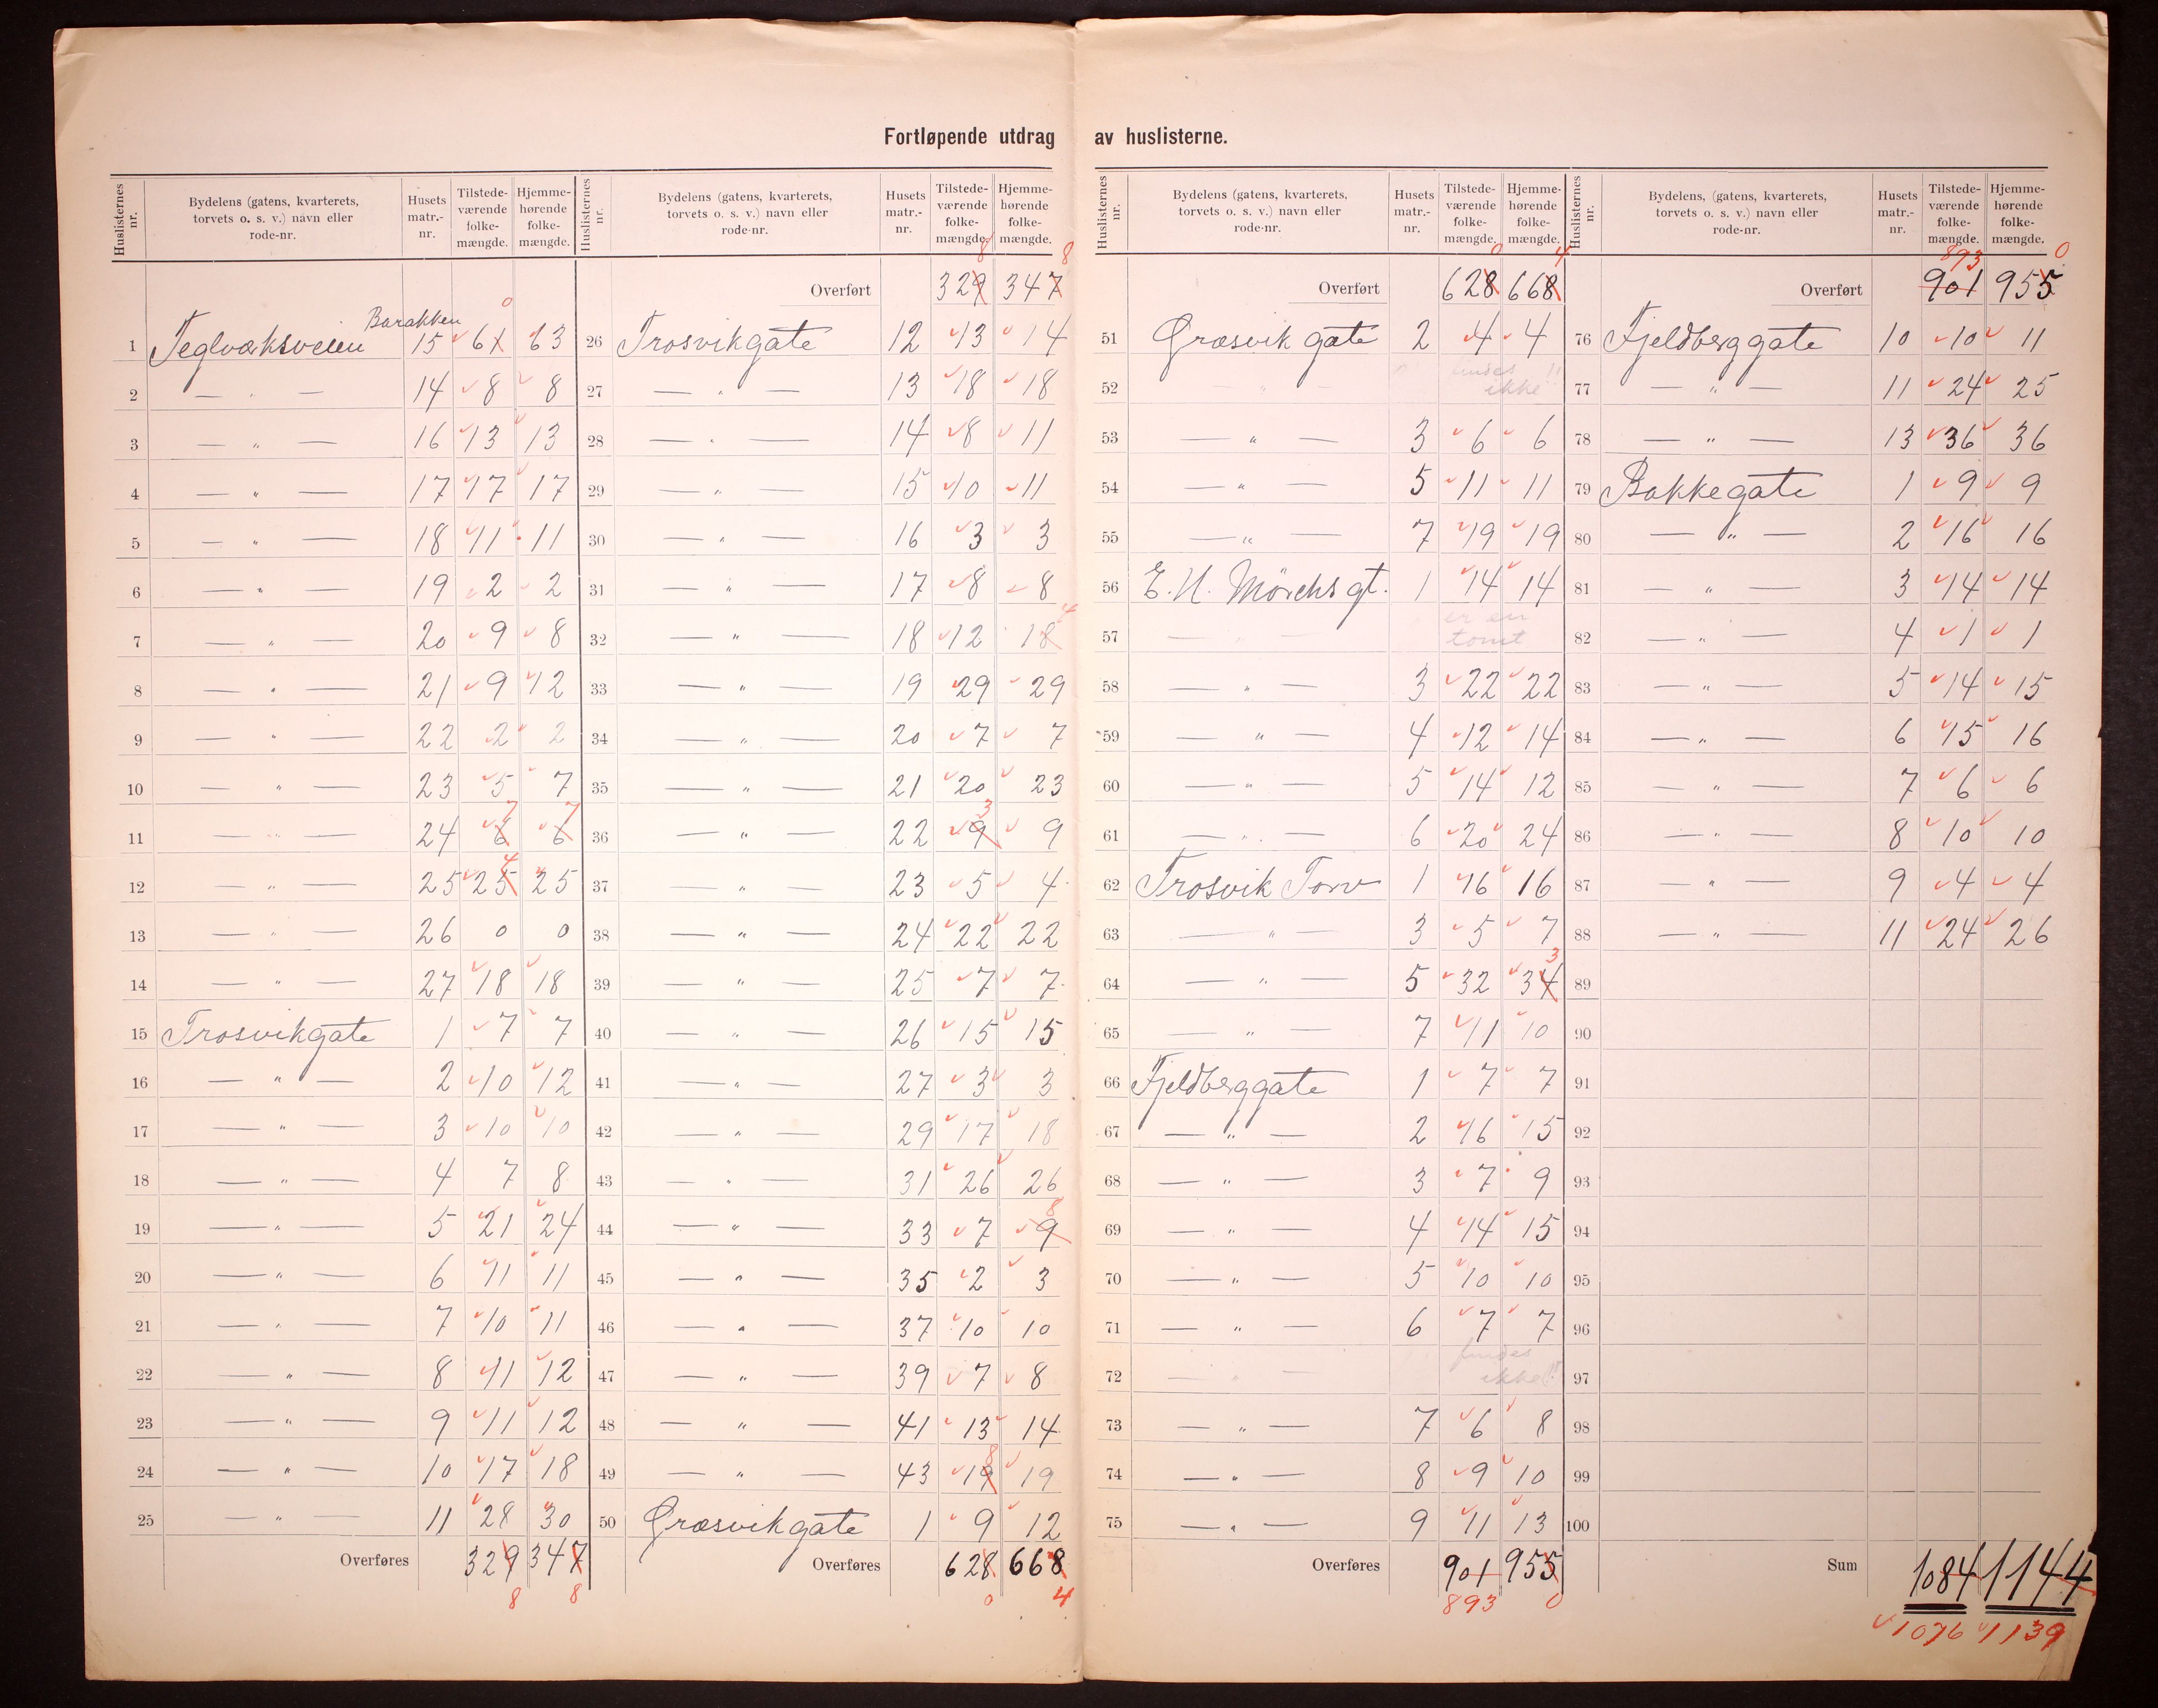 Fortløpende utdrag av huslisterne.
Huslisternes nr. | Bydelens (gatens, kvarterets, torvets o. s. v.) navn eller rode-nr. | Husets matr.-nr. | Tilstede-værende folke-mængde. | Hjemme-hørende folke-mængde.
1 Teglværksveien Barakken 15 61 0 63
2 — " — 14 8 8
3 — " — 16 13 13
4 — " — 17 17 17
5 — " — 18 11 11
6 — " — 19 2 2
7 — " — 20 9 8
8 — " — 21 9 12
9 — " — 22 2 2
10 — " — 23 5 7
11 — " — 24 6 7 6 7
12 — " — 25 25 4 25
13 — " — 26 0 0
14 — " — 27 18 18
15 Trosvikgate 1 7 7
16 — " — 2 10 12
17 — " — 3 10 10
18 — " — 4 7 8
19 — " — 5 21 24
20 — " — 6 11 11
21 — " — 7 10 11
22 — " — 8 11 12
23 — " — 9 11 12
24 — " — 10 17 18
25 — " — 11 28 30
Overføres 329 347
8 8
Huslisternes nr. | Bydelens (gatens, kvarterets, torvets o. s. v.) navn eller rode-nr. | Husets matr.-nr. | Tilstede-værende folke-mængde. | Hjemme-hørende folke-mængde.
8 8
Overført 329 347
26 Trosvikgate 12 13 14
27 — " — 13 18 18
28 — " — 14 8 11
29 — " — 15 10 11
30 — " — 16 3 3
31 — " — 17 8 8
32 — " — 18 12 18 4
33 — " — 19 29 29
34 — " — 20 7 7
35 — " — 21 20 23
36 — " — 22 9 3 9
37 — " — 23 5 4
38 — " — 24 22 22
39 — " — 25 7 7
40 — " — 26 15 15
41 — " — 27 3 3
42 — " — 29 17 18
43 — " — 31 26 26
44 — " — 33 7 9 8
45 — " — 35 2 3
46 — " — 37 10 10
47 — " — 39 7 8
48 — " — 41 13 14
49 — " — 43 19 8 19
50 Græsvikgate 1 9 12
Overføres 628 668
0 4
Huslisternes nr. | Bydelens (gatens, kvarterets, torvets o. s. v.) navn eller rode-nr. | Husets matr.-nr. | Tilstede-værende folke-mængde. | Hjemme-hørende folke-mængde.
0 4
Overført 628 668
51 Græsvik gate 2 4 4
52 — " — findes ikke!!
53 — " — 3 6 6
54 — " — 5 11 11
55 — " — 7 19 19
56 E. H. Mörchs gt. 1 14 14
57 — " — er en tomt
58 — " — 3 22 22
59 — " — 4 12 14
60 — " — 5 14 12
61 — " — 6 20 24
62 Trosvik Torv 1 16 16
63 — " — 3 5 7
64 — " — 5 32 34 3
65 — " — 7 11 10
66 Fjeldberggate 1 7 7
67 — " — 2 16 15
68 — " — 3 7 9
69 — " — 4 14 15
70 — " — 5 10 10
71 — " — 6 7 7
72 — " — findes ikke!!
73 — " — 7 6 8
74 — " — 8 9 10
75 — " — 9 11 13
Overføres 901 955
893 0
Huslisternes nr. | Bydelens (gatens, kvarterets, torvets o. s. v.) navn eller rode-nr. | Husets matr.-nr. | Tilstede-værende folke-mængde. | Hjemme-hørende folke-mængde.
893 0
Overført 901 955
76 Fjeldberggate 10 10 11
77 — " — 11 24 25
78 — " — 13 36 36
79 Bakkegate 1 9 9
80 — " — 2 16 16
81 — " — 3 14 14
82 — " — 4 1 1
83 — " — 5 14 15
84 — " — 6 15 16
85 — " — 7 6 6
86 — " — 8 10 10
87 — " — 9 4 4
88 — " — 11 24 26
89
90
91
92
93
94
95
96
97
98
99
100
Sum 1084 1144
1076 1139